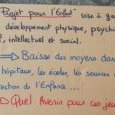 "Projet pour l'Enfant" vise à g
développement physique, psych
?, intellectuel et social.
⇒ Baisse des moyens dans
hôpitaux, les écoles, les
de l'Enfance...
⇒ Quel Avenir pour ces jeu